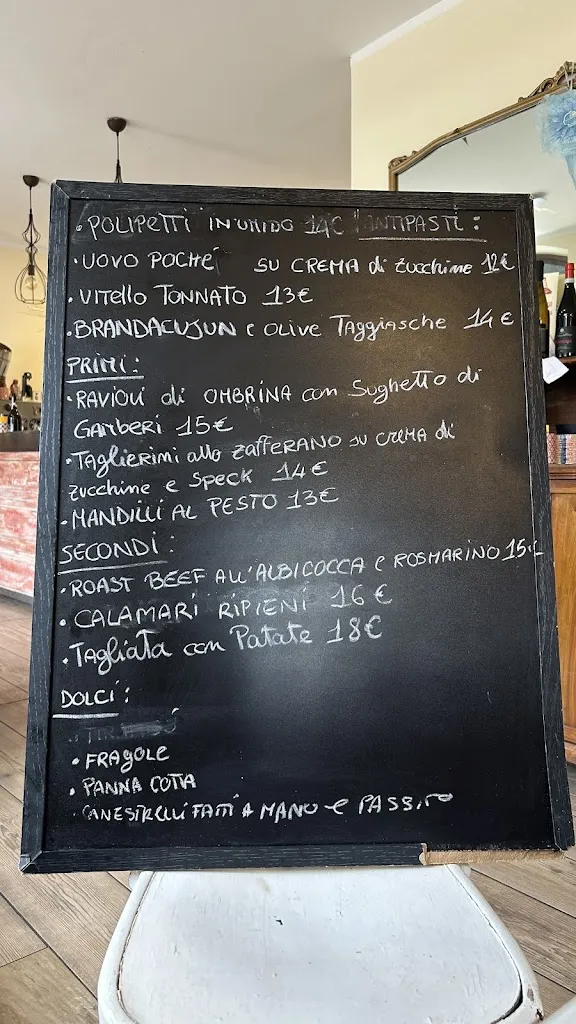 • POLIPETTI IN UMIDO 14€ ANTIPASTI:
• UOVO POCHÉ SU CREMA di zucchine 12€
• VITELLO TONNATO 13€
• BRANDACUJUN e OLIVE TAGGIASCHE 14€
PRIMI:
• RAVIOLI di OMBRINA con Sughetto di
GAMBERI 15€
• Taglierimi allo ZAFFERANO su CREMA di
zucchine e SPECK 14€
• MANDILLI AL PESTO 13€
SECONDI:
• ROAST BEEF ALL'ALBICOCCA e ROSMARINO 15€
• CALAMARI RIPIENI 16€
• Tagliata con Patate 18€
DOLCI:
• FRAGOLE
• PANNA COTTA
• CANESTRELLI FATTI A MANO e PASSITO